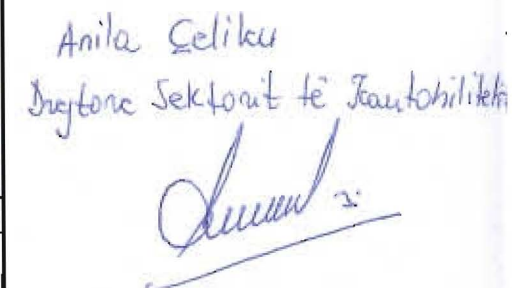 Anila Çeliku
Drejtore Sektorit të Kontabilitetit